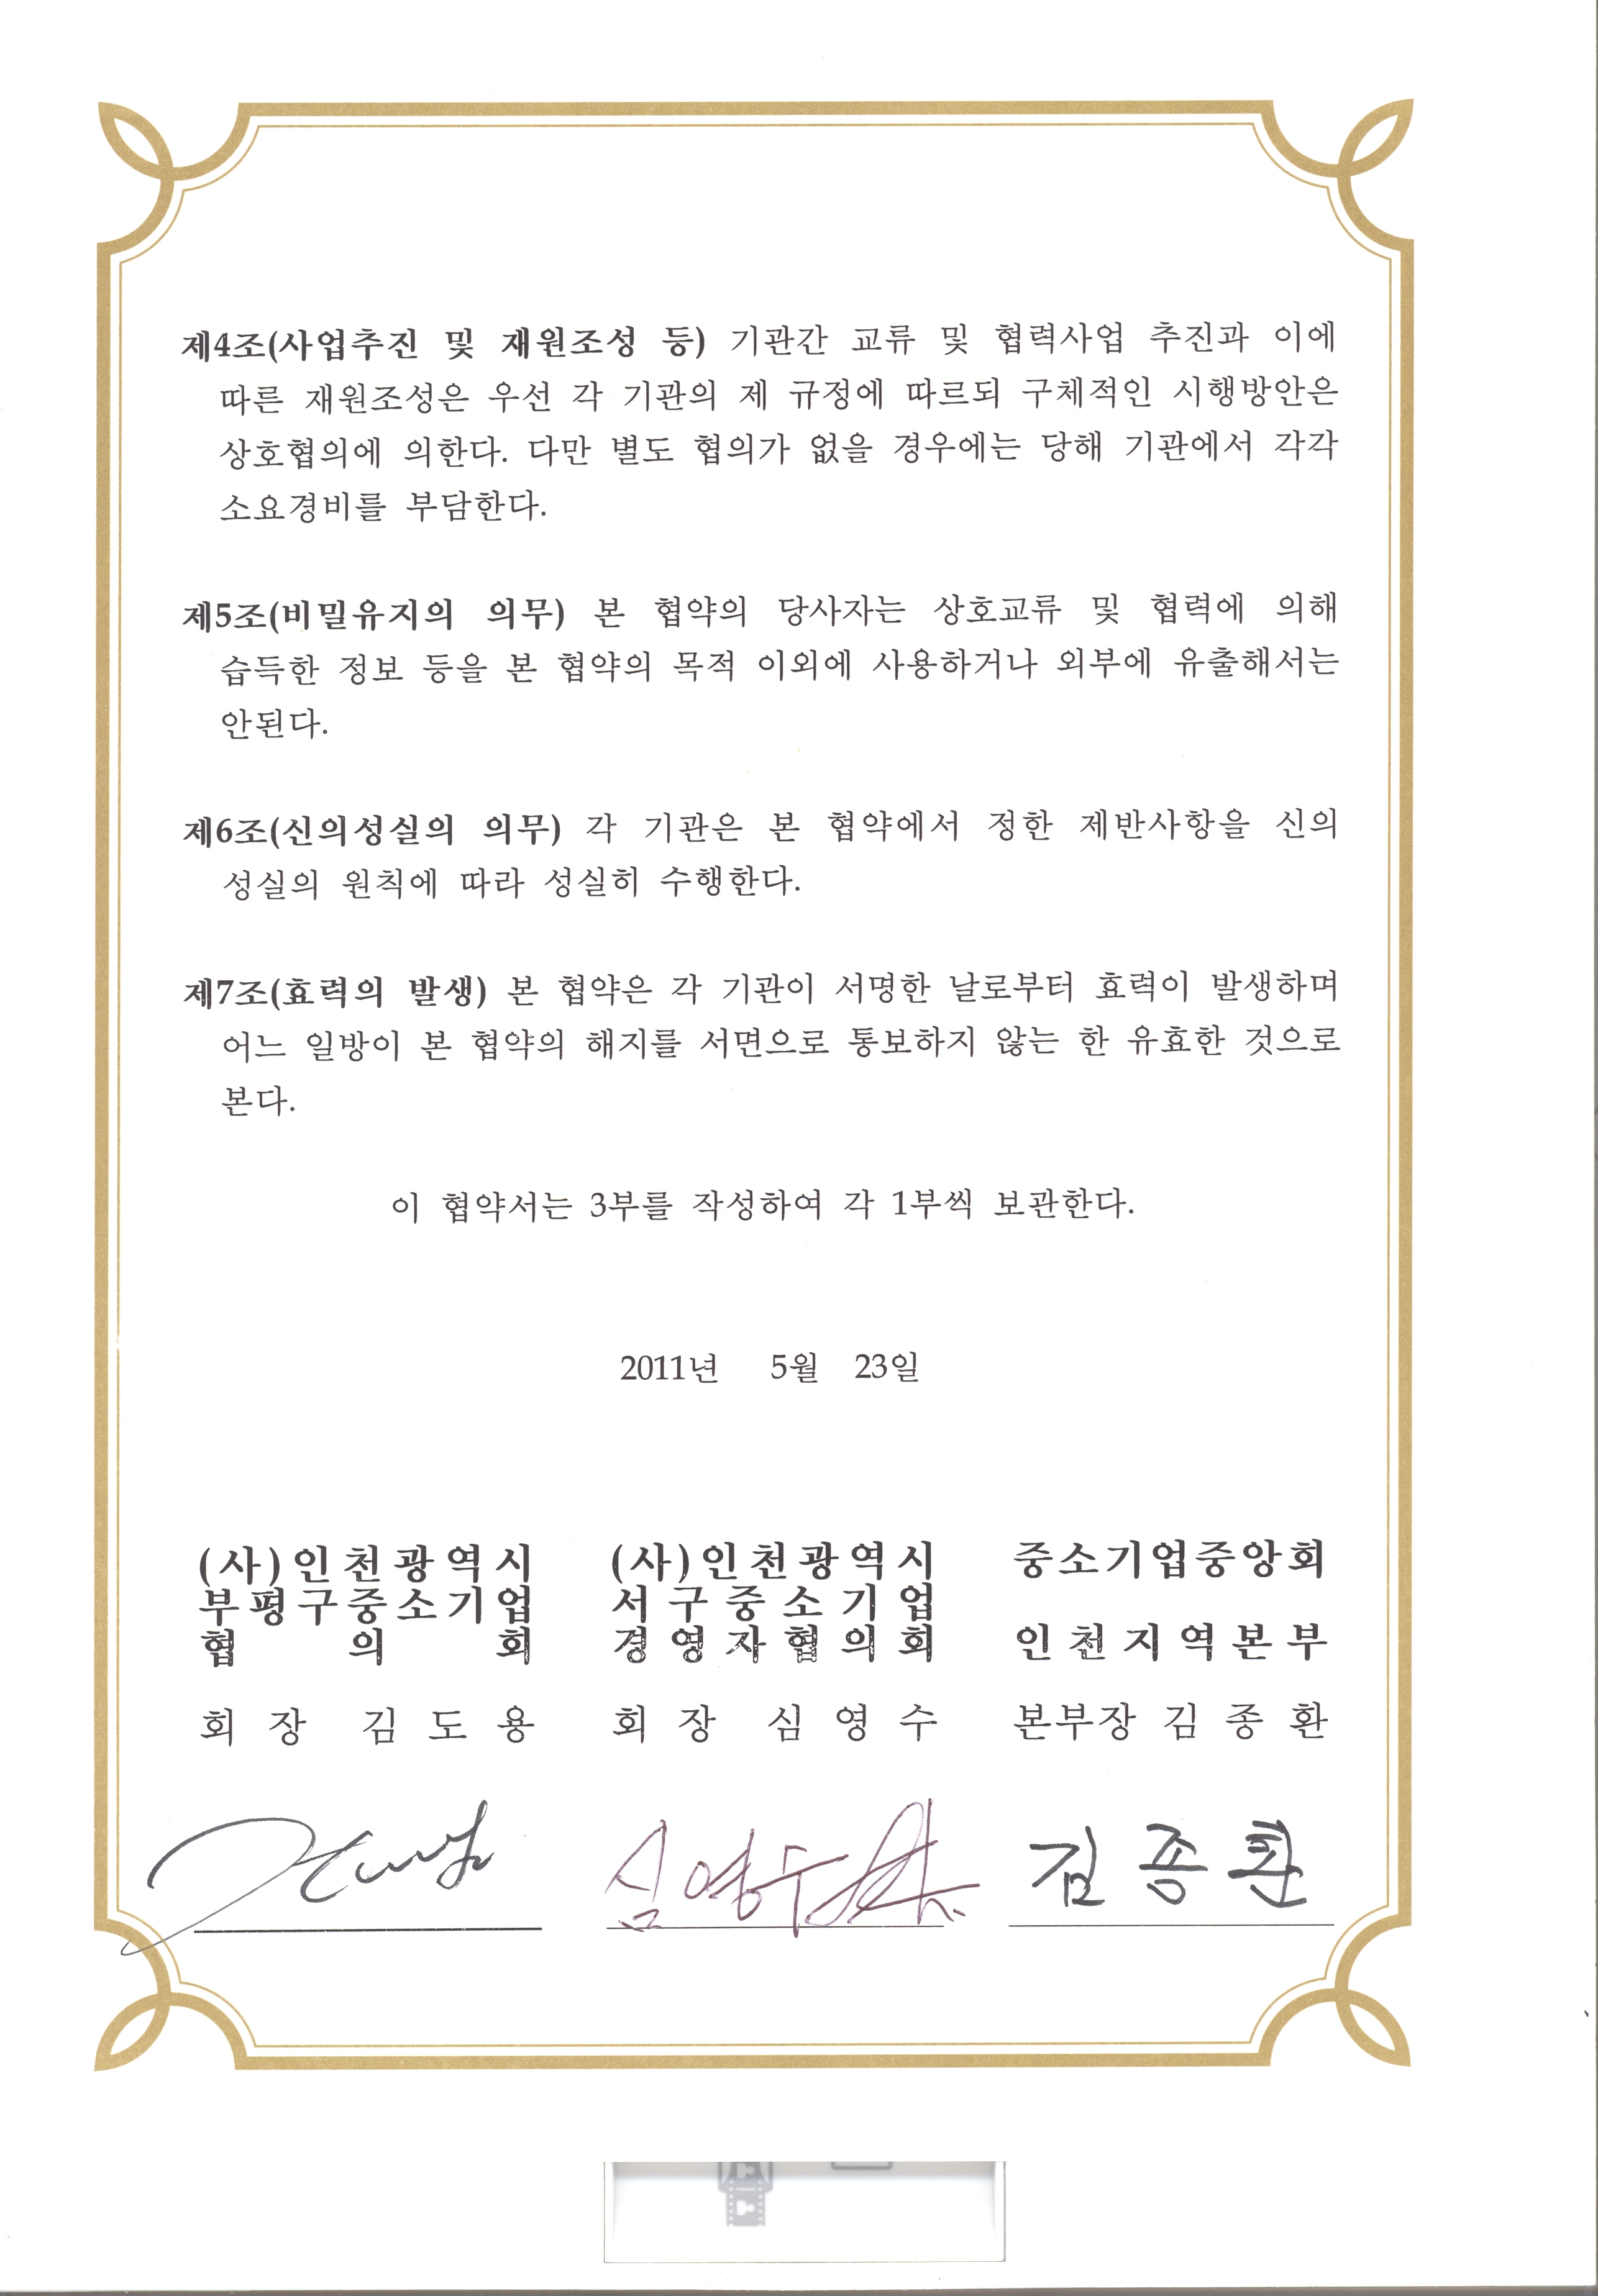 제4조(사업추진 및 재원조성 등) 기관간 교류 및 협력사업 추진과 이에
따른 재원조성은 우선 각 기관의 제 규정에 따르되 구체적인 시행방안은
상호협의에 의한다. 다만 별도 협의가 없을 경우에는 당해 기관에서 각각
소요경비를 부담한다.
제5조(비밀유지의 의무) 본 협약의 당사자는 상호교류 및 협력에 의해
습득한 정보 등을 본 협약의 목적 이외에 사용하거나 외부에 유출해서는
안된다.
제6조(신의성실의 의무) 각 기관은 본 협약에서 정한 제반사항을 신의
성실의 원칙에 따라 성실히 수행한다.
제7조(효력의 발생) 본 협약은 각 기관이 서명한 날로부터 효력이 발생하며
어느 일방이 본 협약의 해지를 서면으로 통보하지 않는 한 유효한 것으로
본다.
이 협약서는 3부를 작성하여 각 1부씩 보관한다.
2011년 5월 23일
(사)인천광역시
부평구중소기업
협의회
회장 김도용
(사)인천광역시
서구중소기업
경영자협의회
회장 심영수
중소기업중앙회
인천지역본부
본부장 김종환
심영수
김종환